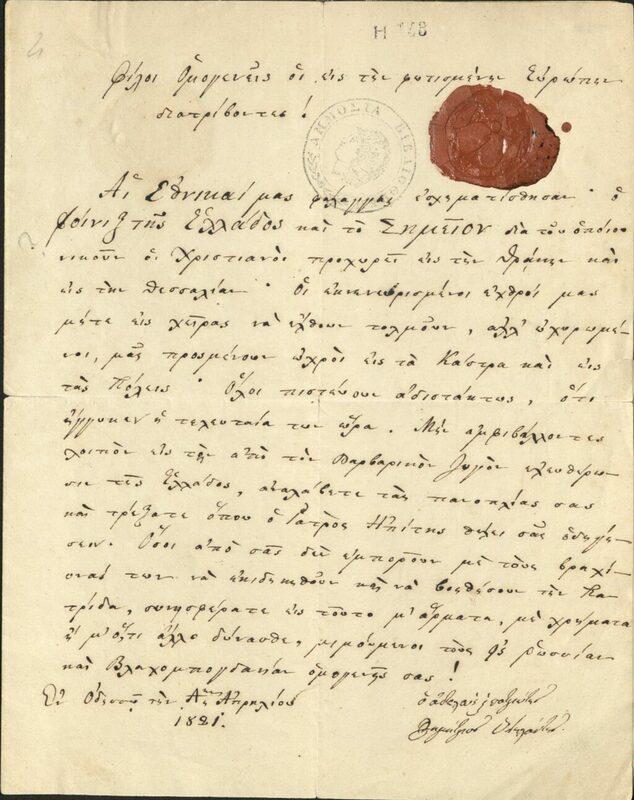 Η 148
Φίλοι Ὁμογενεῖς οἱ εἰς τὴν φωτισμένην Εὐρώπην
διατρίβοντες!
ΔΗΜΟΣΙΑ ΒΙΒΛΙΟΘ
Αἱ Ἐθνικαί μας φάλαγγες ἐσχηματίσθησαν · ὁ
φοίνιξ τῆς Ἑλλάδος καὶ τὸ Σημεῖον διὰ τοῦ ὁποίου
νικοῦν οἱ Χριστιανοὶ προχωρεῖ εἰς τὴν Θράκην καὶ
εἰς τὴν Θεσσαλίαν · Οἱ ἐκνενευρισμένοι ἐχθροί μας
μήτε εἰς χεῖρας νὰ ἔλθουν τολμοῦν, ἀλλ' ὀχυρωμέ-
νοι, μᾶς προσμένουν ὠχροὶ εἰς τὰ Κάστρα καὶ εἰς
τὰς Πόλεις · Ὅλοι πιστεύουν ἀδιστάκτως, ὅτι
ἔφθασεν ἡ τελευταία των ὥρα. Μὴν ἀμφιβάλλοντες
λοιπὸν εἰς τὴν ἀπὸ τὸν Βαρβαρικὸν ζυγὸν ἐλευθέρω-
σιν τῆς Ἑλλάδος, ἀναλάβετε τὰς πανοπλίας σας
καὶ τρέξατε ὅπου ὁ Ἰατρὸς Ἠπίτης θέλει σᾶς ὁδηγή-
σειν. Ὅσοι ἀπὸ σᾶς δὲν ἐμποροῦν μὲ τοὺς βραχί-
ονάς των νὰ ἐκδικηθοῦν καὶ νὰ βοηθήσουν τὴν Πα-
τρίδα, συνεισφέρατε εἰς τοῦτο μ' ἄρματα, μὲ χρήματα
ἢ μ' ὅ,τι ἄλλο δύνασθε, μιμούμενοι τοὺς ἐξ Ῥωσσίαν
καὶ Βλαχομπογδανίαν ὁμογενεῖς σας!
Ἐν Ὀδησσῷ τὴν Αην Ἀπρηλίου
1821.
Δημήτριος Ὑψηλάντης.